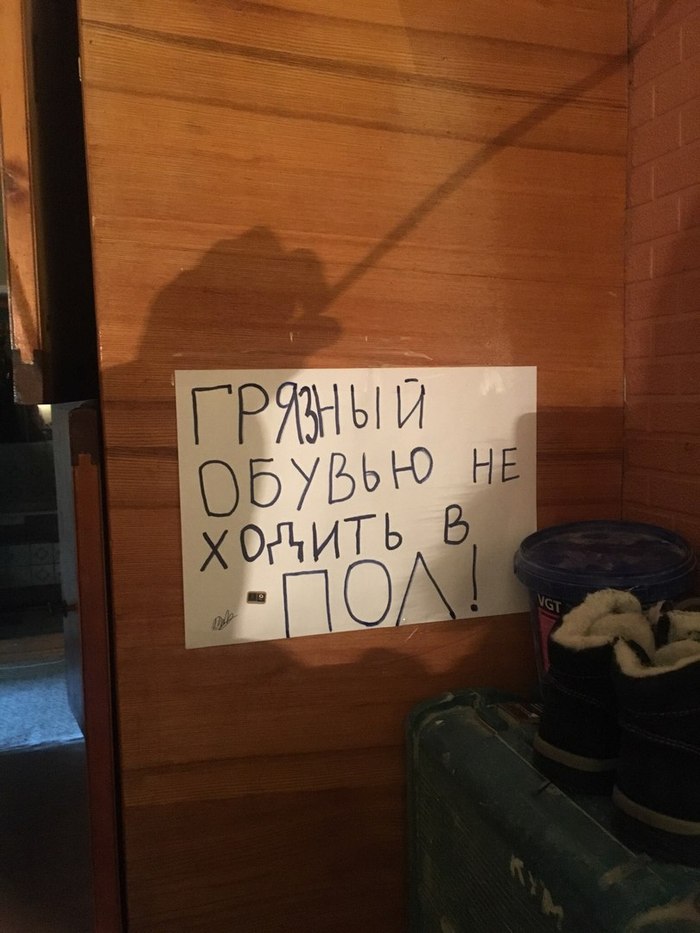 ГРЯЗНЫЙ
ОБУВЬЮ НЕ
ХОДИТЬ В
ПОЛ!
VGT
КУМ